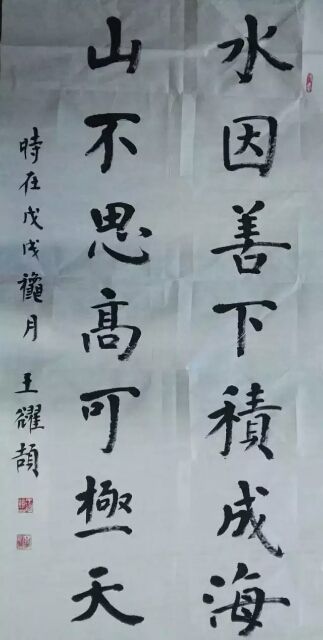 水因善下積成海
山不思高可極天
時在戊戌龝月 王耀頡